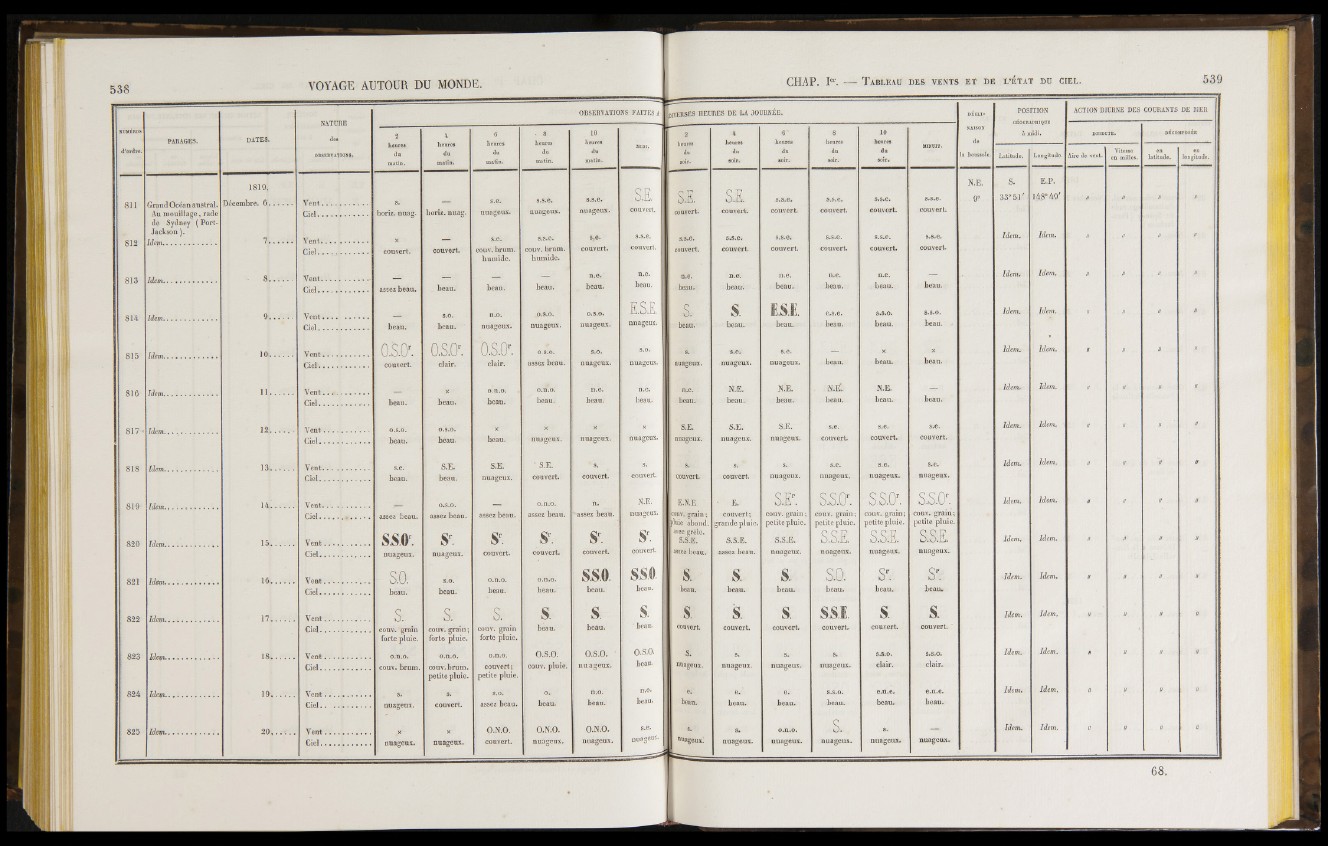 538 VOYAGE AUTOUR DU MONDE.
NUMÉROS d'ordre. PARAGES. DATES. NATURE des OBSERVATIONS. OBSERVATIONS FAITES
2 heures du matin. 4 heures du matin. 6 heures du matin. 8 heures du matin. 10 heures du matin. MIDI.
1819.
811 Grand Océan austral. Au mouillage, rade de Sydney (Port-Jackson). Décembre. 6
Vent s. — s.e. s.s.e. s.s.e. S.E.
Ciel horiz. nuag. horiz. nuag. nuageux. nuageux. nuageux. couvert.
812 Idem. 7
Vent x — s.e. s.s.e. s.e. s.s.e.
Ciel couvert. couvert. couv. brum. humide. couv. brum. humide. couvert. couvert.
813 Idem. 8
Vent — — — — n.e. n.e.
Ciel assez beau. beau. beau. beau. beau. beau.
814 Idem. 9
Vent — s.o. n.o. o.s.o. o.s.o. E.S.E.
Ciel beau. beau. nuageux. nuageux. nuageux. nuageux.
815 Idem. 10
Vent O.S.Or. O.S.Or. O.S.Or. o.s.o. s.o. s.o.
Ciel couvert. clair. clair. assez beau. nuageux. nuageux.
816 Idem. 11
Vent — x o.n.o. o.n.o. n.e. n.e.
Ciel beau. beau. beau. beau. beau. beau.
817 Idem. 12
Vent o.s.o. o.s.o. x x x x
Ciel beau. beau. beau. nuageux. nuageux. nuageux.
818 Idem. 13
Vent s.e. S.E. S.E. S.E. s. s.
Ciel beau. beau. nuageux. couvert. couvert. couvert.
819 Idem. 14
Vent — o.s.o. — o.n.o. n. N.E.
Ciel assez beau. assez beau. assez beau. assez beau. assez beau. nuageux.
820 Idem. 15
Vent S.S.Or. Sr. Sr. Sr. Sr. Sr.
Ciel nuageux. nuageux. couvert. couvert. couvert. couvert.
821 Idem. 16
Vent S.O. s.o. o.n.o. o.n.o. S.S.O. S.S.O.
Ciel beau. beau. beau. beau. beau. beau.
822 Idem. 17
Vent S. S. S. S. S. S.
Ciel couv. grain forte pluie. couv. grain; forte pluie. couv. grain forte pluie. beau. beau. beau.
823 Idem. 18
Vent o.n.o. o.n.o. o.n.o. O.S.O. O.S.O. O.S.O.
Ciel couv. brum. couv. brum. petite pluie. couvert; petite pluie. couv. pluie. nuageux. beau.
824 Idem. 19
Vent s. s. s.o. o. n.o. n.o.
Ciel nuageux. couvert. assez beau. beau. beau. beau.
825 Idem. 20
Vent x x O.N.O. O.N.O. O.N.O. s.e.
Ciel nuageux. nuageux. couvert. nuageux. nuageux. nuageux.
CHAP. Ier. — TABLEAU DES VENTS ET DE L'ÉTAT DU CIEL. 539
DIVERSES HEURES DE LA JOURNÉE. DÉCLINAISON de la boussole. POSITION GÉOGRAPHIQUE à midi. ACTION DIURNE DES COURANTS DE MER
2 heures du soir. 4 heures du soir. 6 heures du soir. 8 heures du soir. 10 heures du soir. MINUIT. Latitude. Longitude. Aire de vent. Vitesse en milles. en latitude. en longitude.
N.E. S. E.P.
S.E. S.E. s.s.e. s.s.e. s.s.e. s.s.e. 9° 33° 51′ 148° 40′
couvert. couvert. couvert. couvert. couvert. couvert.
s.s.e. s.s.e. s.s.e. s.s.e. s.s.e. s.s.e. Idem. Idem.
couvert. couvert. couvert. couvert. couvert. couvert.
n.e. n.e. n.e. n.e. n.e. — Idem. Idem.
beau. beau. beau. beau. beau. beau.
S. S. E.S.E. e.s.e. s.s.o. s.s.o. Idem. Idem.
beau. beau. beau. beau. beau. beau.
s. s.e. s.e. — x x Idem. Idem.
nuageux. nuageux. nuageux. beau. beau. beau.
n.e. N.E. N.E. N.E. N.E. — Idem. Idem.
beau. beau. beau. beau. beau. beau.
S.E. S.E. S.E. s.e. s.e. s.e. Idem. Idem.
nuageux. nuageux. nuageux. couvert. couvert. couvert.
s. s. s. s.e. s.e. s.e. Idem. Idem.
couvert. couvert. nuageux. nuageux. nuageux. nuageux.
E.N.E. E. S.Er. S.S.Or. S.S.Or. S.S.Or. Idem. Idem.
couv. grain; pluie abond. avec grêle. couvert; grande pluie. couv. grain; petite pluie. couv. grain; petite pluie. couv. grain; petite pluie. couv. grain; petite pluie.
S.S.E. S.S.E. S.S.E. S.S.E. S.S.E. S.S.E. Idem. Idem.
assez beau. assez beau. nuageux. nuageux. nuageux. nuageux.
S. S. S. S.O. Sr. Sr. Idem. Idem.
beau. beau. beau. beau. beau. beau.
S. S. S. S.S.E. S. S. Idem. Idem.
couvert. couvert. couvert. couvert. couvert. couvert.
S. s. s. s. s.s.o. s.s.o. Idem. Idem.
nuageux. nuageux. nuageux. nuageux. clair. clair.
e. e. e. s.s.o. e.n.e. e.n.e. Idem. Idem.
beau. beau. beau. beau. beau. beau.
s. s. o.n.o. S. s. — Idem. Idem.
nuageux. nuageux. nuageux. nuageux. nuageux. nuageux.
68.